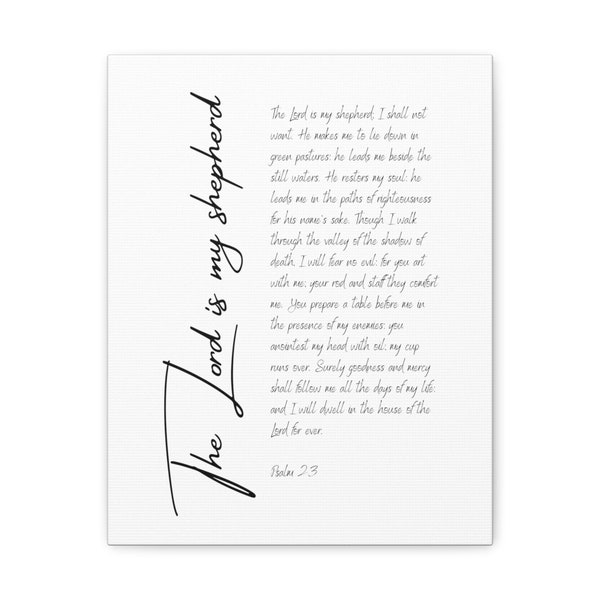 The Lord is my shepherd
The Lord is my shepherd; I shall not
want. He makes me to lie down in
green pastures: he leads me beside the
still waters. He restors my soul: he
leads me in the paths of righteousness
for his name's sake. Though I walk
through the valley of the shadow of
death, I will fear no evil: for you art
with me; your rod and staff they comfort
me. You prepare a table before me in
the presence of my enemies: you
anointest my head with oil; my cup
runs over. Surely goodness and mercy
shall follow me all the days of my life:
and I will dwell in the house of the
Lord for ever.
Psalm 23